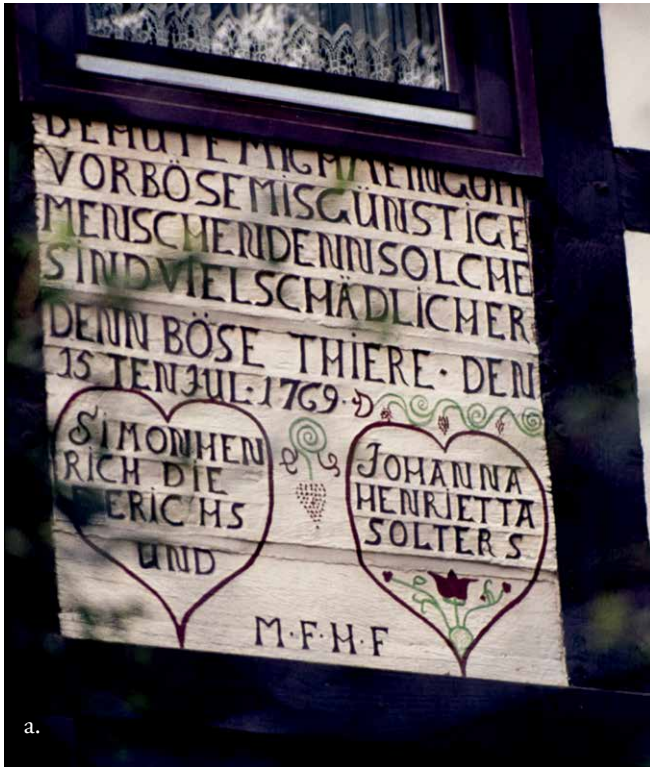 BEHÜTE MICH MEINGOTT
VORBÖSEMISGÜNSTIGE
MENSCHENDENNSOLCHE
SINDVIELSCHÄDLICHER
DENN BÖSE THIERE · DEN
15 TEN JUL · 1769 ·
SIMONHEN
RICH DIE
DERICHS
UND
JOHANNA
HENRIETTA
SOLTERS
M·F·H·F
a.